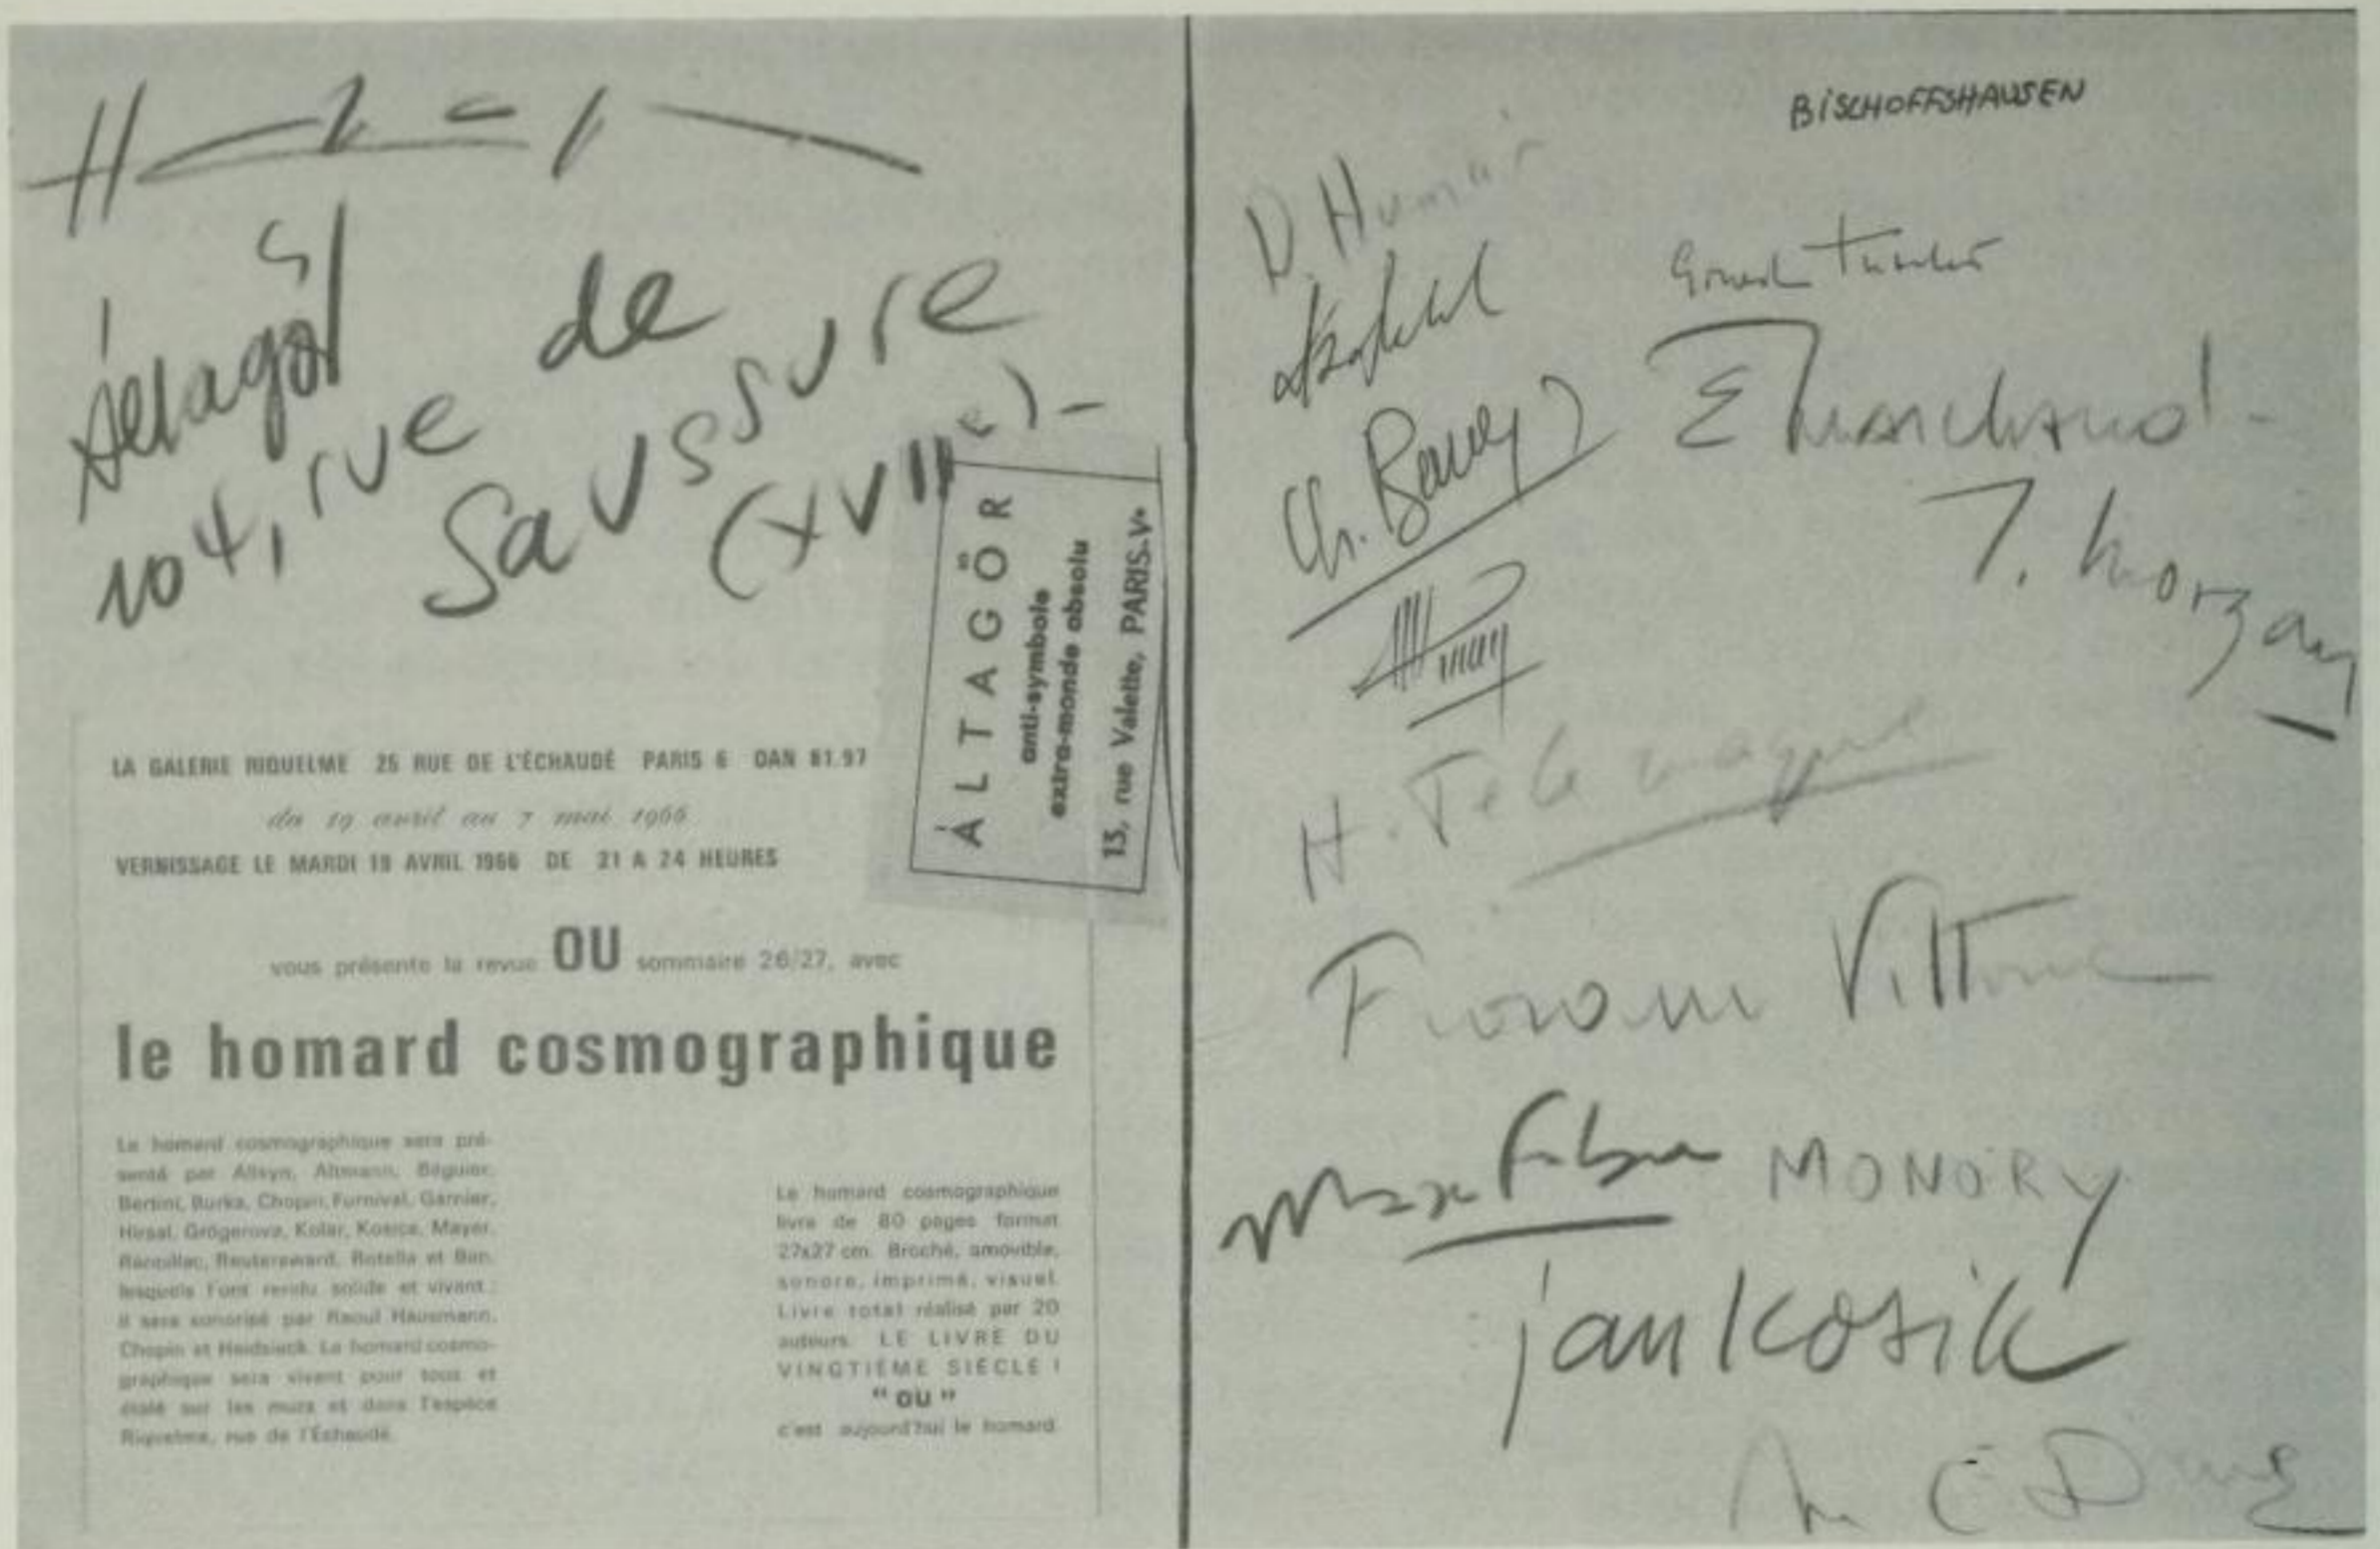 104, rue de
Saussure
(XVIIe)-
ÁLTAGÖR
anti-symbole
extra-monde absolu
13, rue Valette, PARIS-Ve
LA GALERIE RIQUELME 25 RUE DE L'ÉCHAUDÉ PARIS 6 DAN 81.97
du 19 avril au 7 mai 1966
VERNISSAGE LE MARDI 19 AVRIL 1966 DE 21 A 24 HEURES
vous présente la revue OU sommaire 26/27, avec
le homard cosmographique
Le homard cosmographique sera pré-
senté par Altsyn, Altmann, Béguier,
Bertini, Burka, Chopin, Furnival, Garnier,
Hirsal, Grögerova, Kolar, Kosice, Mayer,
Rancillac, Reutersward, Rotella et
lesquels l'ont rendu solide et vivant ;
il sera sonorisé par Raoul Hausmann,
Chopin et Heidsieck. Le homard cosmo-
graphique sera vivant pour tous et
étalé sur les murs et dans l'espace
Riquelme, rue de l'Échaudé.
Le homard cosmographique
livre de 80 pages format
27x27 cm. Broché, amovible,
sonore, imprimé, visuel.
Livre total réalisé par 20
auteurs. LE LIVRE DU
VINGTIÈME SIÈCLE !
" OU "
c'est aujourd'hui le homard.
BISCHOFFSHAUSEN
D. Humair
E Marchand
T. Morgan
H. Télémaque
MONORY
jan Kosik